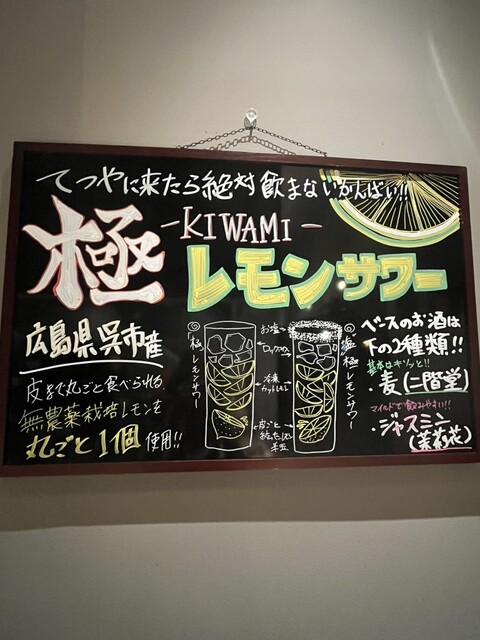 てつやに来たら絶対飲まないかんばい!!
極
-KIWAMI-
レモンサワー
広島県呉市産
皮まで丸ごと食べられる
無農薬栽培レモンを
丸ごと1個使用!!
◎極レモンサワー
お塩
ロックアイス
冷凍カットレモン
皮ごと
搾ったレモン
果玉
◎塩極レモンサワー
ベースのお酒は
下の2種類!!
基本はキリッと!!
・麦(二階堂)
マイルドで飲みやすい!!
・ジャスミン
(茉莉花)